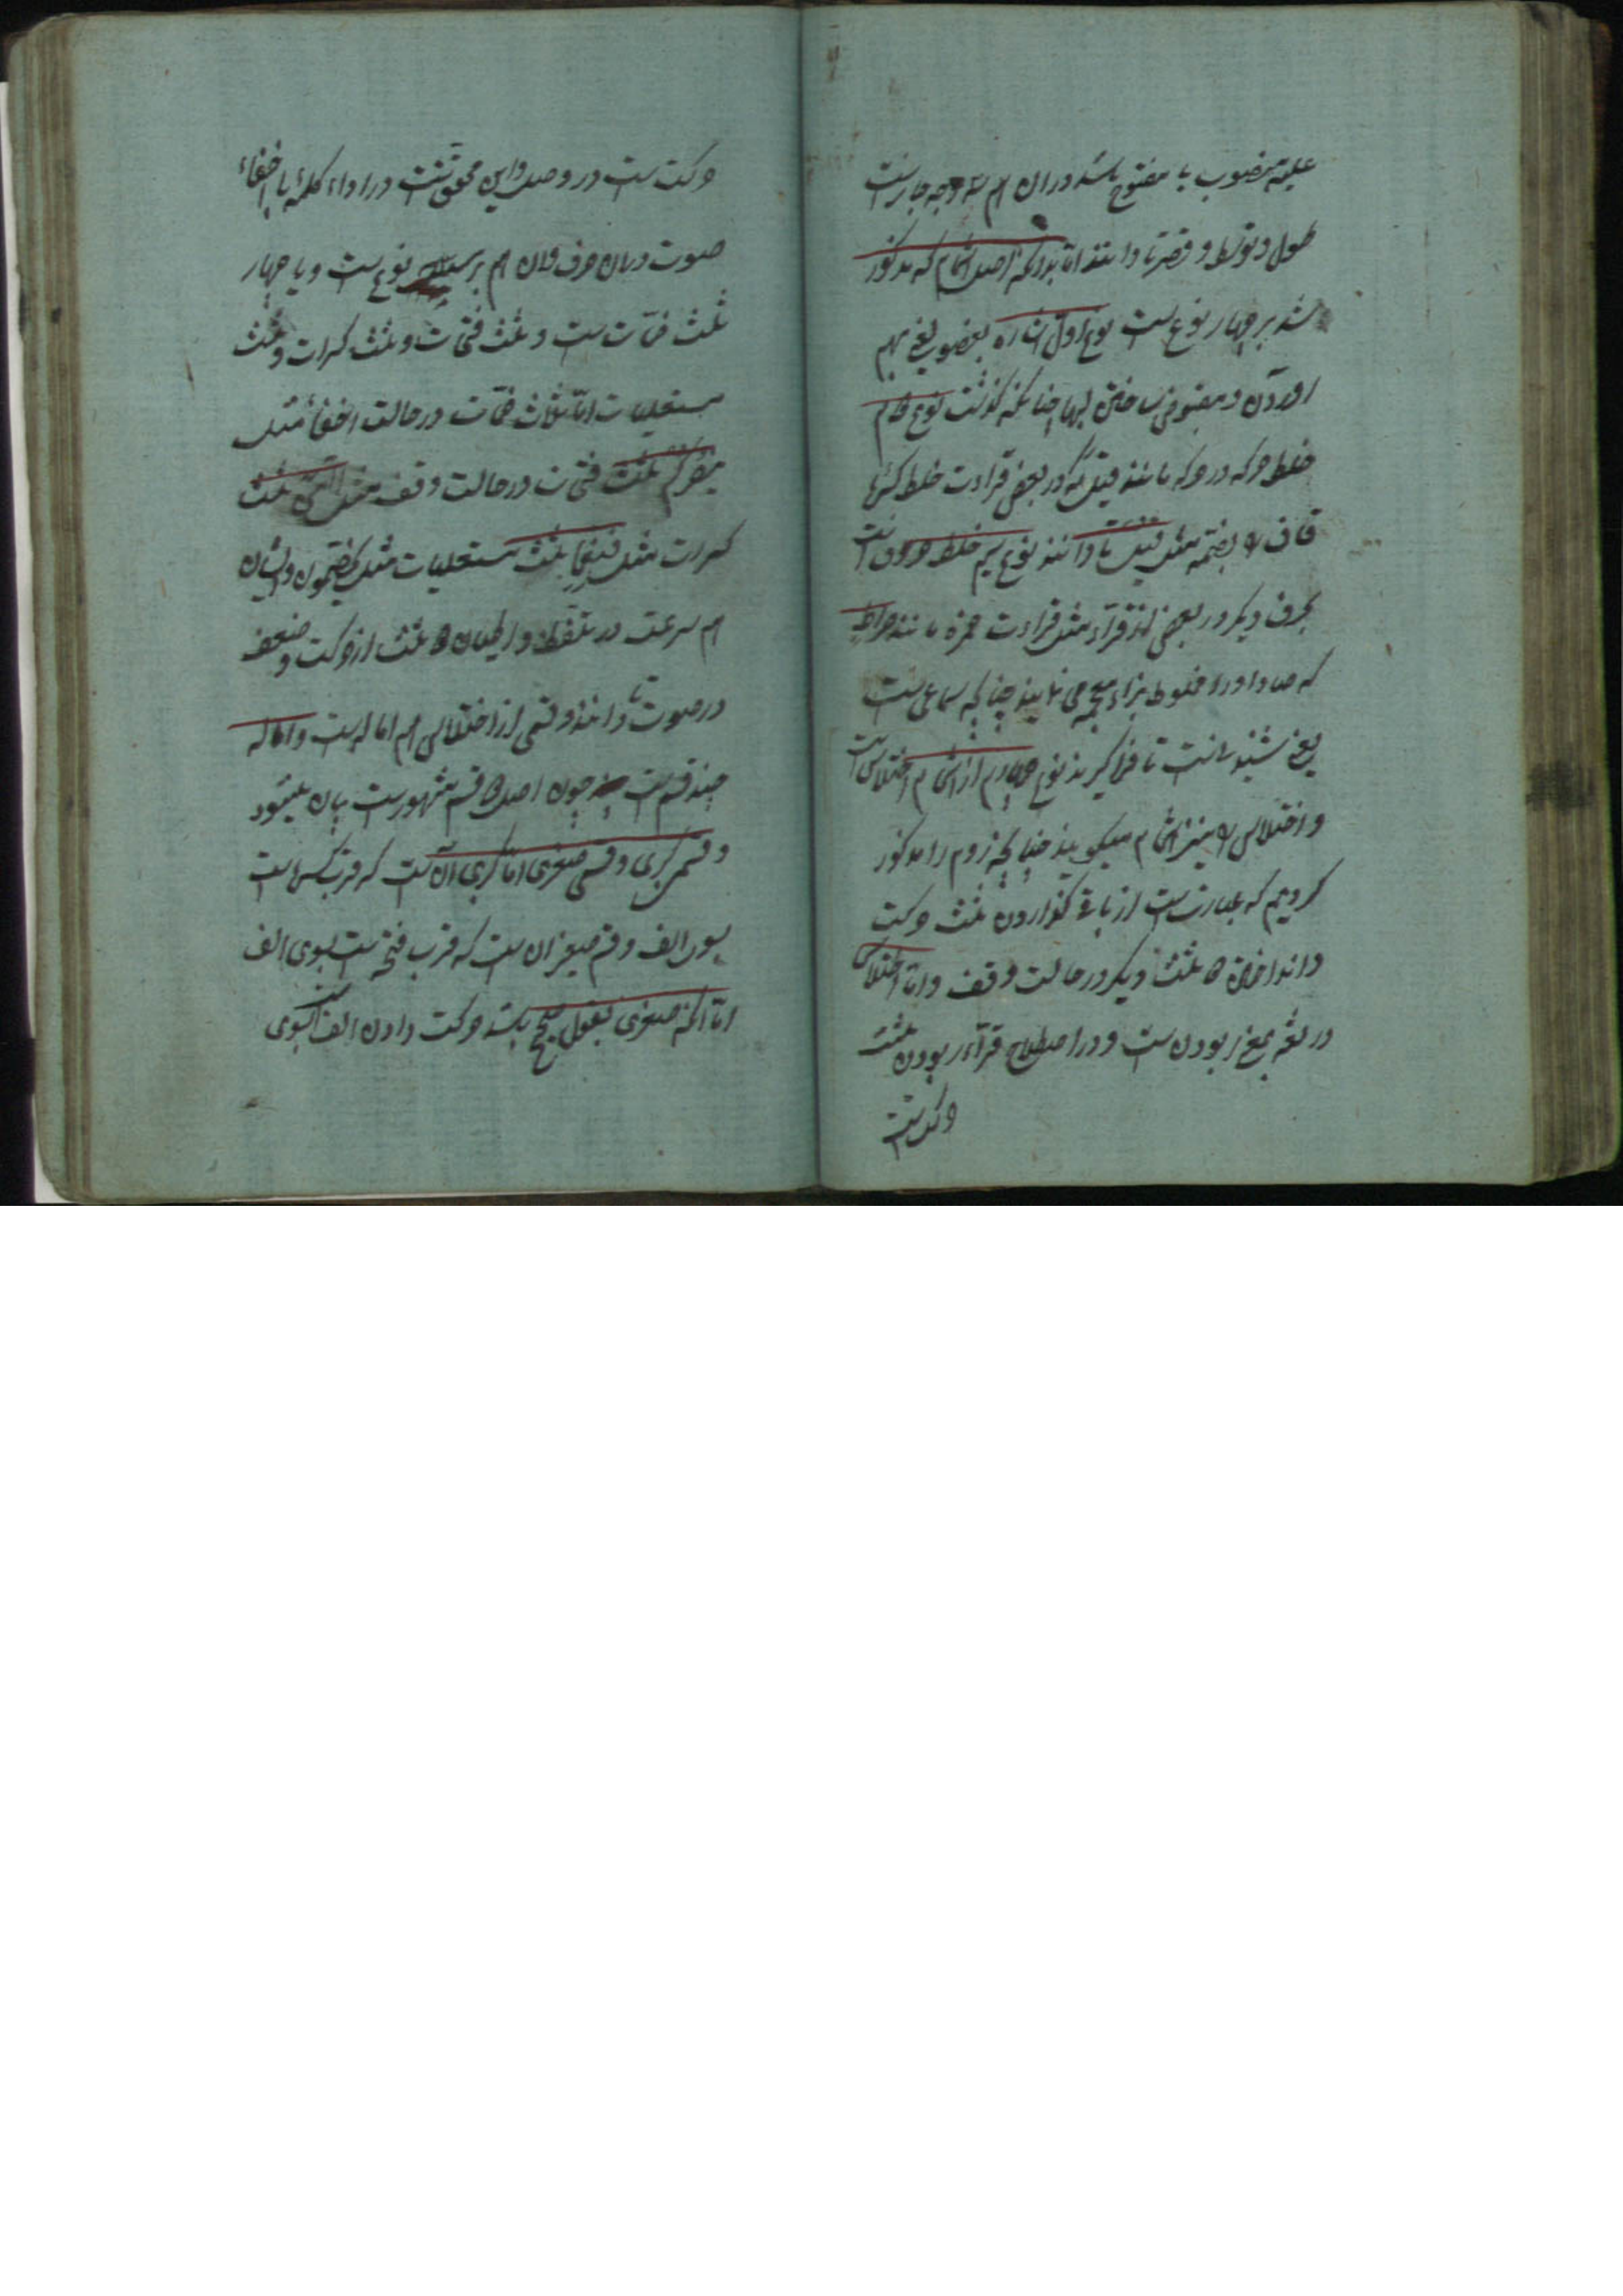 علیه منصوب یا مفتوح باشد دران هم سه وجه جایزست
طول و توسط و قصر تا دانند اما بدانکه اصل اشمام که مذکور
شد بر چهار نوع ست نوع اول اشاره بعضو یعنی بهم
اوردن و مضموم ساختن لبها چنانکه گذشت نوع دوم
خلط حرکه در حرکه مانند قیل که در بعضی قراءت خلط کسرهٔ
قاف را بضمه مثل قیل تا دانند نوع سیم خلط حروف ست
بحرف دیگر در بعضی از قرآء مثل قراءت حمزه مانند صراط
که صاد او را مخلوط بزاء معجمه می نمایند چنانکه سماعی ست
یعنی شنیدنیست تا فرا گیرند نوع چهارم از اشمام اختلاس ست
و اختلاس را نیز اشمام میگویند چنانکه روم را مذکور
کردیم که عبارتست از باقی گذاردن ثلث حرکت
و انداختن دو ثلث دیگر در حالت وقف و اما اختلاس
در لغة بمعنی ربودن ست و در اصطلاح قرآء ربودن ثلث
حرکت ست
حرکت ست در وصل و این محقق نیست در اداء کلمه یا باخفاء
صوت در ان حرف و ان هم بر نوع ست و یا چهار
ثلث ضمّات ست و ثلث فتحات و ثلث کسرات و ثلث
مستعلیات اما ثلث ضمّات در حالت اخفا مثل
ثلث فتحات در حالت وقف مثل ثلث
کسرات مثل فنعما ثلث مستعلیات مثل یخصمون و ایشان
هم سرعت در تلفظ و ابطال دو ثلث از حرکت و ضعف
در صوت تا دانند و قسمی از اختلاس هم اماله ست و اماله
چند قسم ست چون اصل دو قسم مشهورست بیان میشود
و قسمی کبری و قسمی صغری اما کبری آن ست که قرب کسره است
بسوی الف و قسم صغری ان ست که قرب فتحه ست بسوی الف
اما انکه صغری بقول صحیح باشد حرکت دادن الف ست بسوی